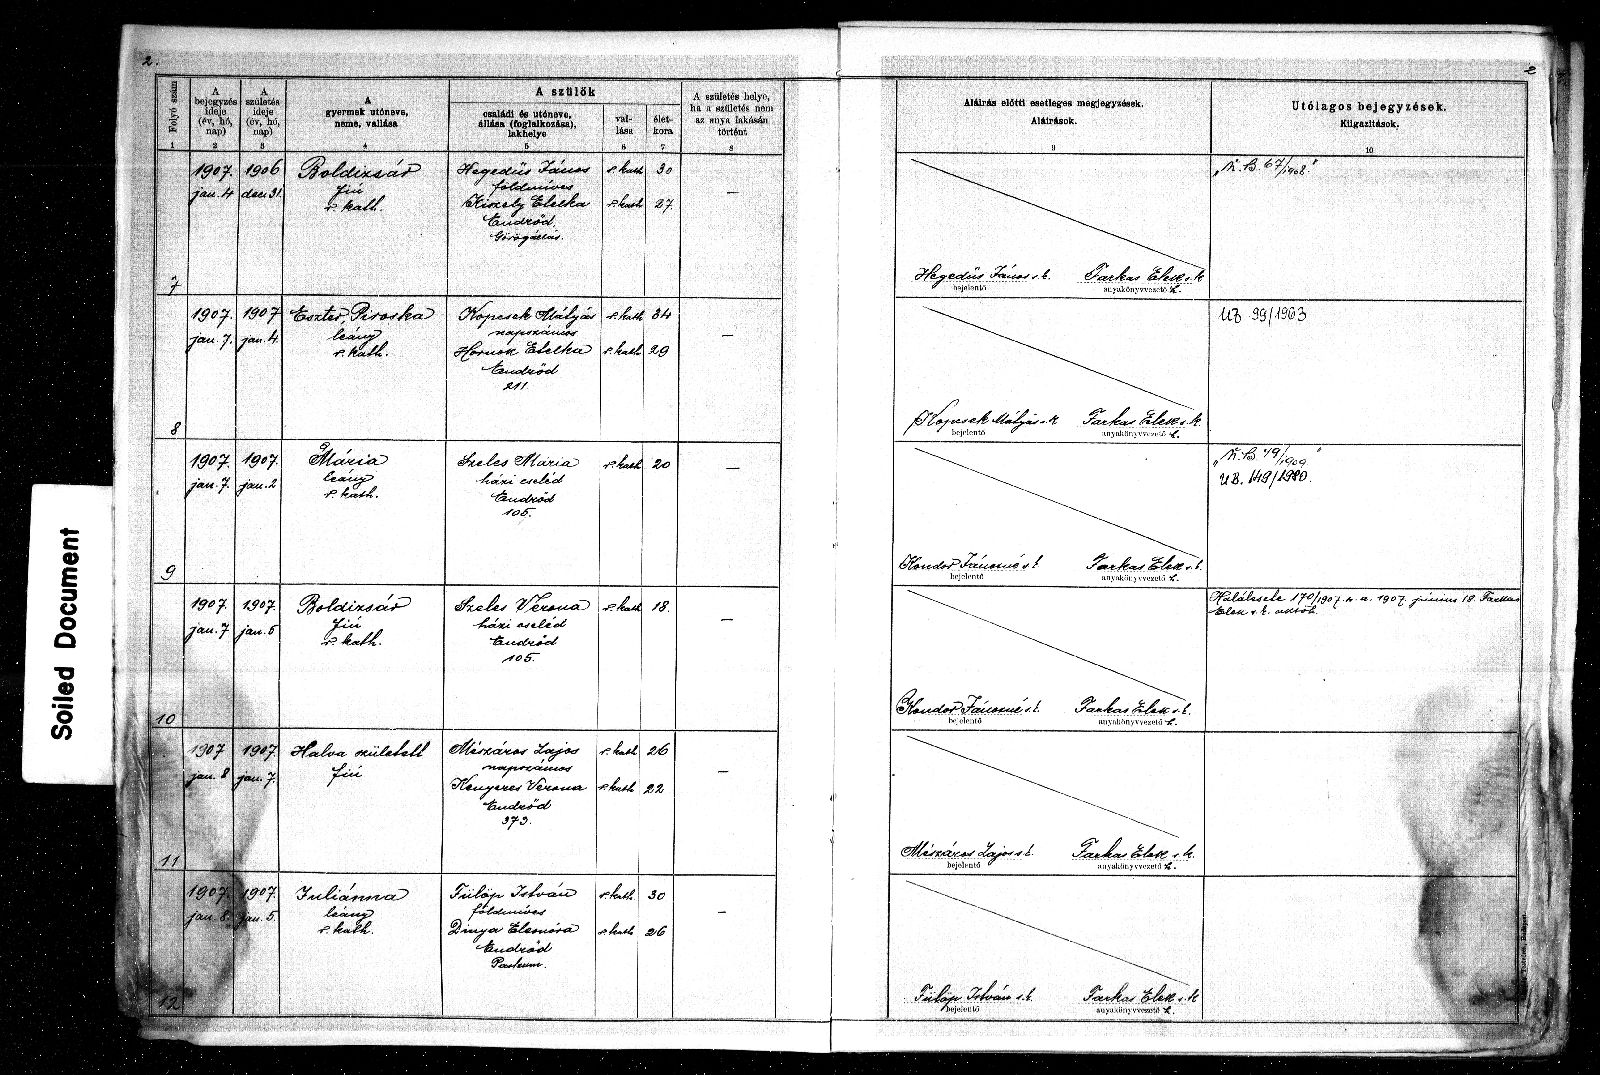 2.
2
Folyó szám
A bejegyzés ideje (év, hó, nap)
A születés ideje (év, hó, nap)
A gyermek utóneve, neme, vallása
A szülők
családi és utóneve, állása (foglalkozása), lakhelye
vallása
életkora
A születés helye, ha a születés nem az anya lakásán történt
Aláírás előtti esetleges megjegyzések.
Aláírások.
Utólagos bejegyzések.
Kiigazítások.
1 2 3 4 5 6 7 8 9 10
1907. 1906 Boldizsár Hegedüs János r. kath. 30
jan. 4 dec. 31. fiú földmíves —
r. kath. Kiszely Etelka r. kath. 27.
Endrőd.
„K. B. 67/1908."
7
Hegedüs János s. k. Farkas Elek s. k.
bejelentő anyakönyvvezető h.
1907. 1907 Eszter Piroska Kopcsek Mátyás r. kath. 34
jan. 7. jan. 4. leány napszámos —
r. kath. Hornok Etelka r. kath. 29
Endrőd
211.
UB 99/1963
8
Kopcsek Mátyás s. k. Farkas Elek s. k.
bejelentő anyakönyvvezető h.
1907. 1907. Mária Szeles Mária r. kath. 20
jan. 7. jan. 2 leány házi cseléd —
r. kath. Endrőd
105.
UB. 149/1980.
9
Kondor Jánosné s. k. Farkas Elek s. k.
bejelentő anyakönyvvezető h.
1907. 1907. Boldizsár Szeles Verona r. kath. 18.
jan. 7 jan. 5 fiú házi cseléd —
r. kath. Endrőd
105.
Halálesete 170/1907. a. 1907. június 19. Farkas
Elek s. k.
10
Kondor Jánosné s. k. Farkas Elek s. k.
bejelentő anyakönyvvezető h.
1907 1907. Halva született Mészáros Lajos r. kath. 26
jan. 8 jan. 7. fiú napszámos —
Kenyeres Verona r. kath. 22
Endrőd
373.
11
Mészáros Lajos s. k. Farkas Elek s. k.
bejelentő anyakönyvvezető h.
1907. 1907. Juliánna Fülöp István r. kath. 30
jan. 8. jan. 5. leány földmíves —
r. kath. Dinya Eleonóra r. kath. 26
Endrőd
12
Fülöp István s. k. Farkas Elek s. k.
bejelentő anyakönyvvezető h.
Soiled Document